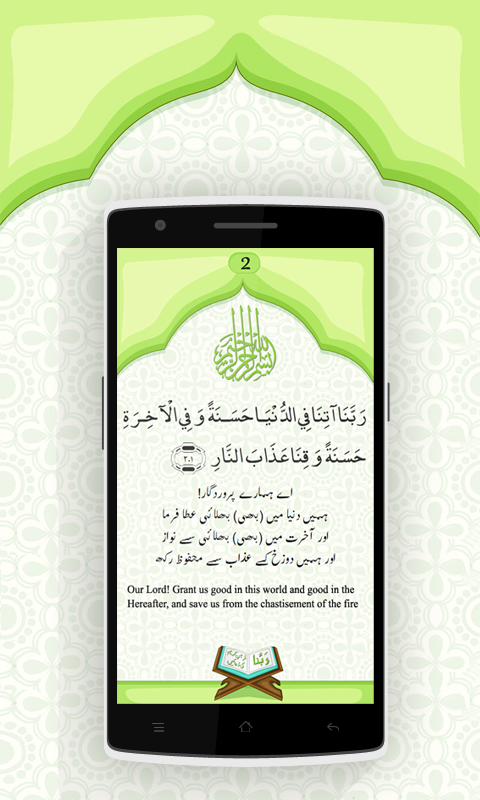 2
بسم الله الرحمن الرحيم
رَبَّنَا آتِنَا فِي الدُّنْيَا حَسَنَةً وَفِي الْآخِرَةِ
حَسَنَةً وَقِنَا عَذَابَ النَّارِ ٢٠١
اے ہمارے پروردگار!
ہمیں دنیا میں (بھی) بھلائی عطا فرما
اور آخرت میں (بھی) بھلائی سے نواز
اور ہمیں دوزخ کے عذاب سے محفوظ رکھ
Our Lord! Grant us good in this world and good in the
Hereafter, and save us from the chastisement of the fire
رَبَّنَا